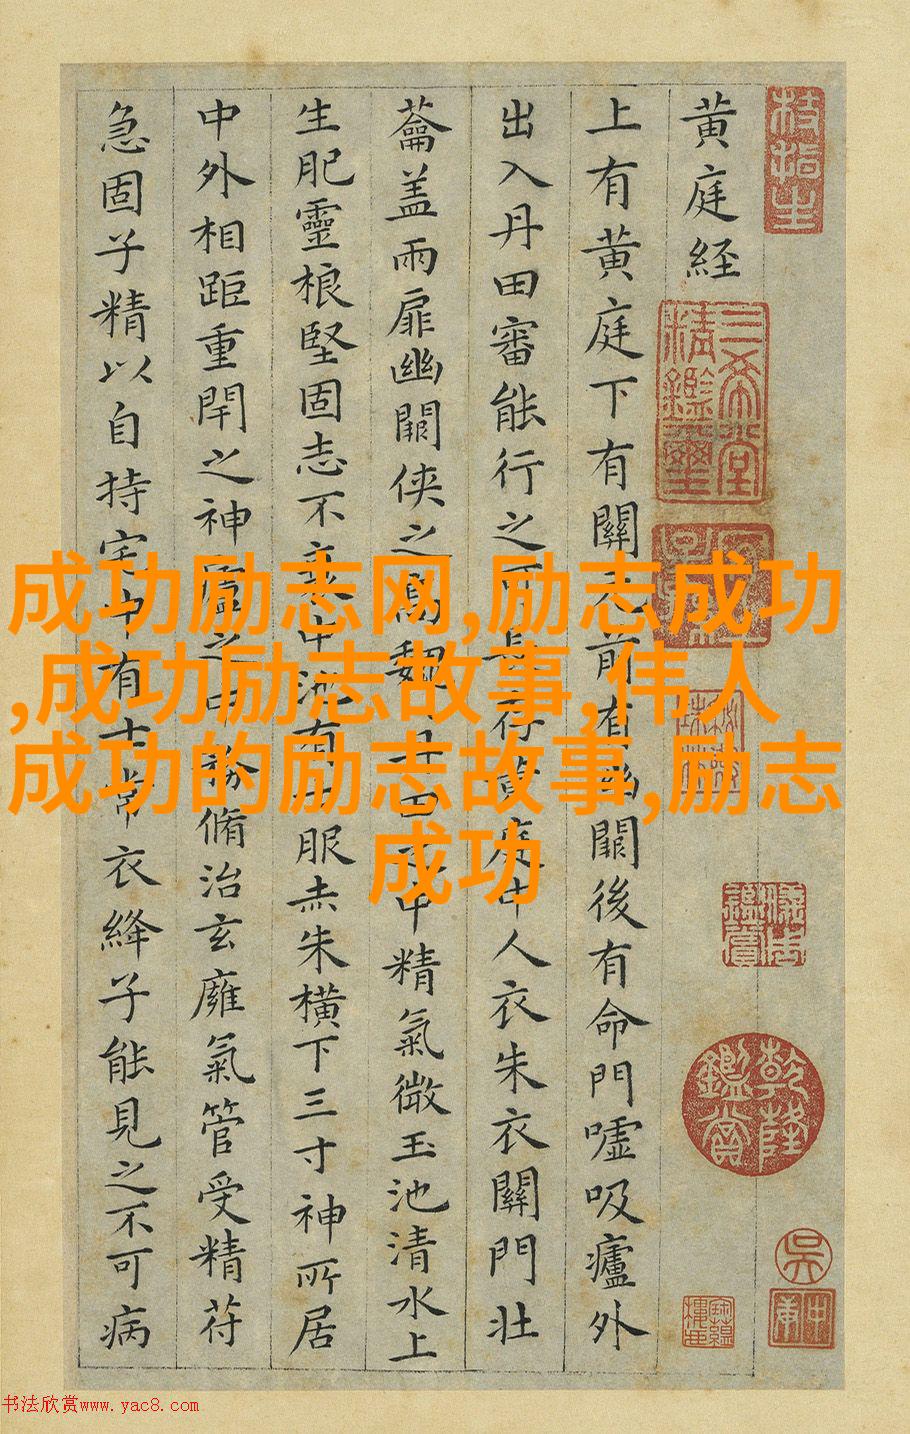 枝指生
黄庭経
三希堂精鑑璽
乾隆鑑賞
吳
上有黄庭下有關元前有幽闕後有命門嘘吸廬外
出入丹田審能行之可長存黄庭中人衣朱衣關門壮
蘥盖兩扉幽闕侠之高魏丹田之中精氣微玉池清水上
生肥靈根堅固志不衰中池有士服赤朱横下三寸神所居
中外相距重閈之神廬之中務脩治玄廱氣管受精苻
急固子精以自持宅中有士常衣絳子能見之不可病
成功励志网,励志成功
,成功励志故事,伟人
成功的励志故事,励志
成功
书法欣赏www.yac8.com